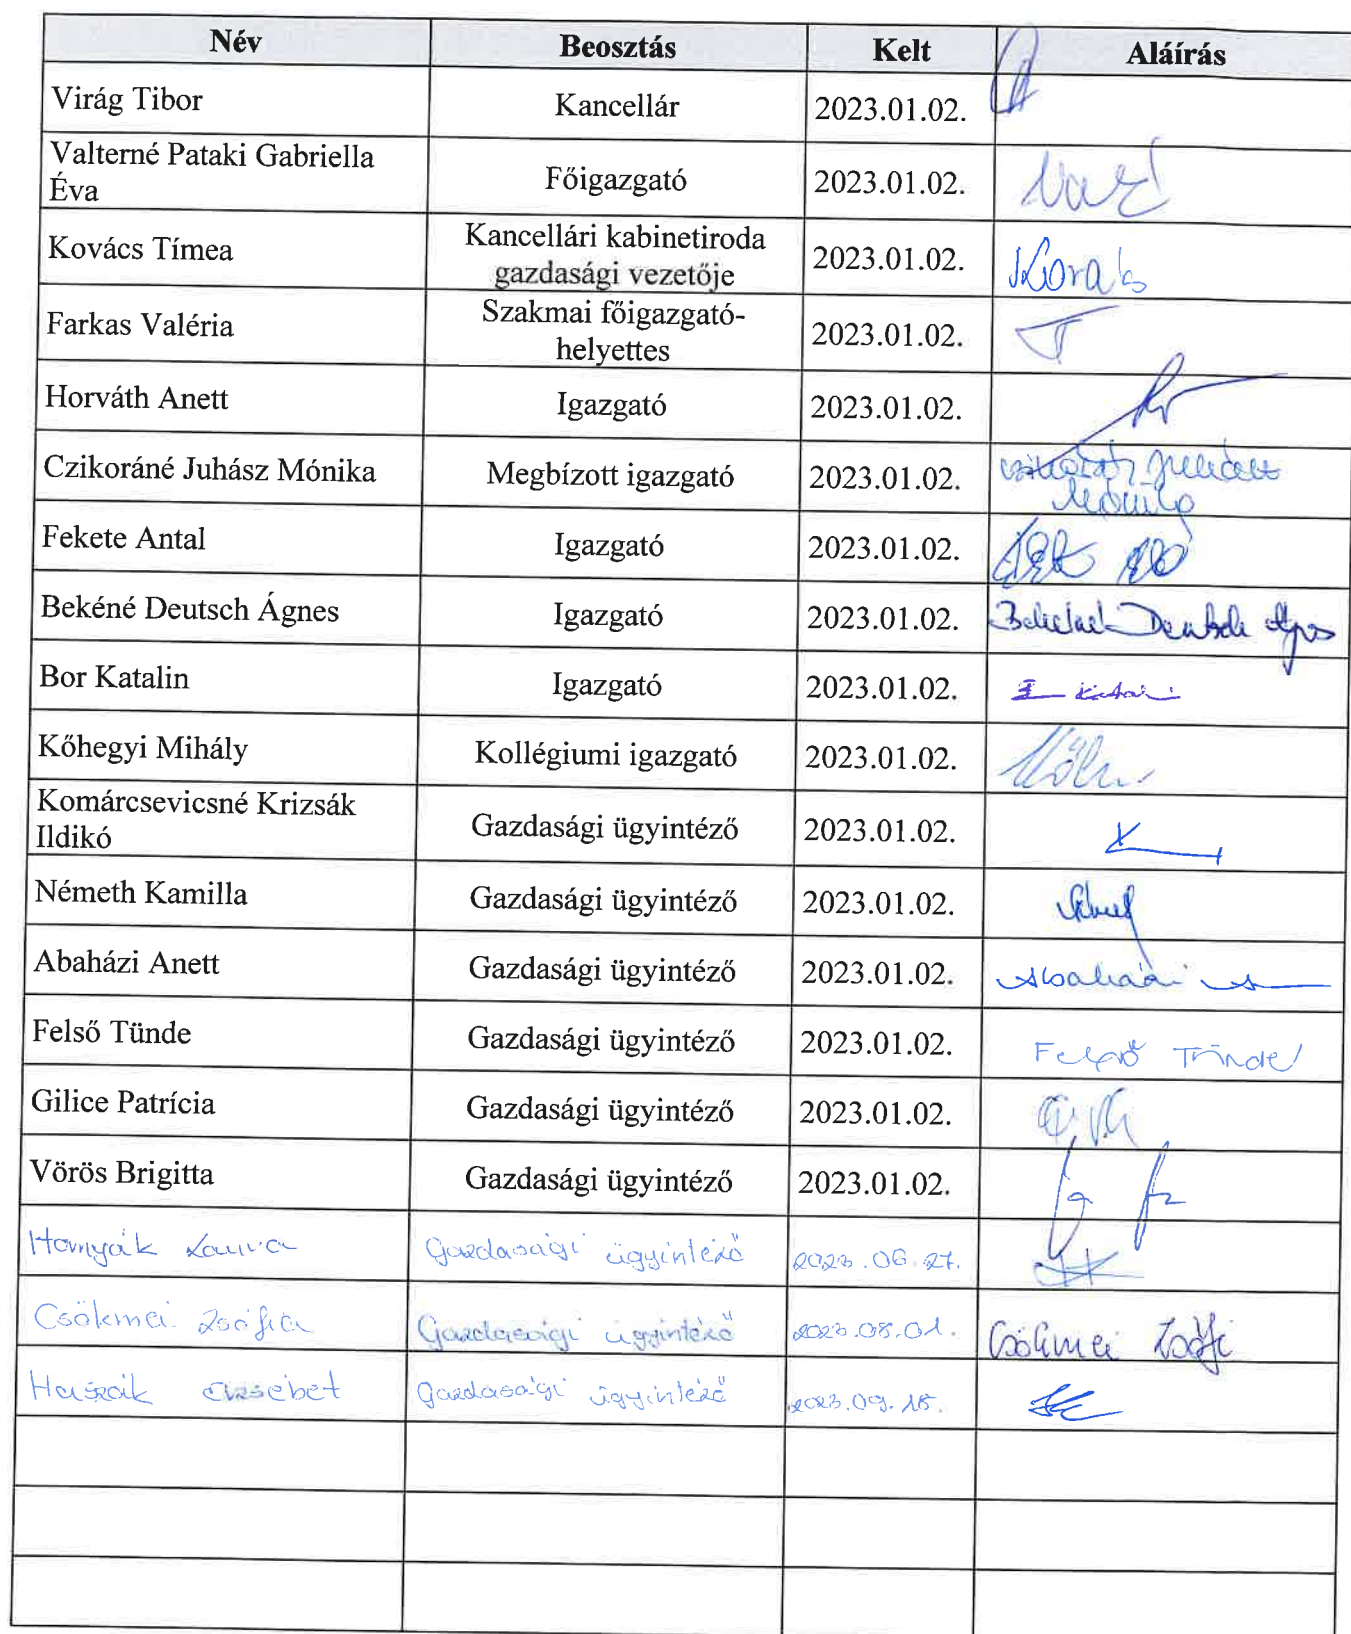 Név Beosztás Kelt Aláírás
Virág Tibor Kancellár 2023.01.02.
Valterné Pataki Gabriella
Éva Főigazgató 2023.01.02.
Kovács Tímea Kancellári kabinetiroda
gazdasági vezetője 2023.01.02.
Farkas Valéria Szakmai főigazgató-
helyettes 2023.01.02.
Horváth Anett Igazgató 2023.01.02.
Czikoráné Juhász Mónika Megbízott igazgató 2023.01.02.
Fekete Antal Igazgató 2023.01.02.
Bekéné Deutsch Ágnes Igazgató 2023.01.02. Bekéné Deutsch Ágnes
Bor Katalin Igazgató 2023.01.02.
Kőhegyi Mihály Kollégiumi igazgató 2023.01.02.
Komárcsevicsné Krizsák
Ildikó Gazdasági ügyintéző 2023.01.02.
Németh Kamilla Gazdasági ügyintéző 2023.01.02.
Abaházi Anett Gazdasági ügyintéző 2023.01.02. Abaházi A
Felső Tünde Gazdasági ügyintéző 2023.01.02. Felső Tünde
Gilice Patrícia Gazdasági ügyintéző 2023.01.02.
Vörös Brigitta Gazdasági ügyintéző 2023.01.02.
Hornyák Laura Gazdasági ügyintéző 2023.06.27.
Csökmei Zsófia Gazdasági ügyintéző 2023.08.01. Csökmei Zsófi
Huszák Erzsébet Gazdasági ügyintéző 2023.09.18.